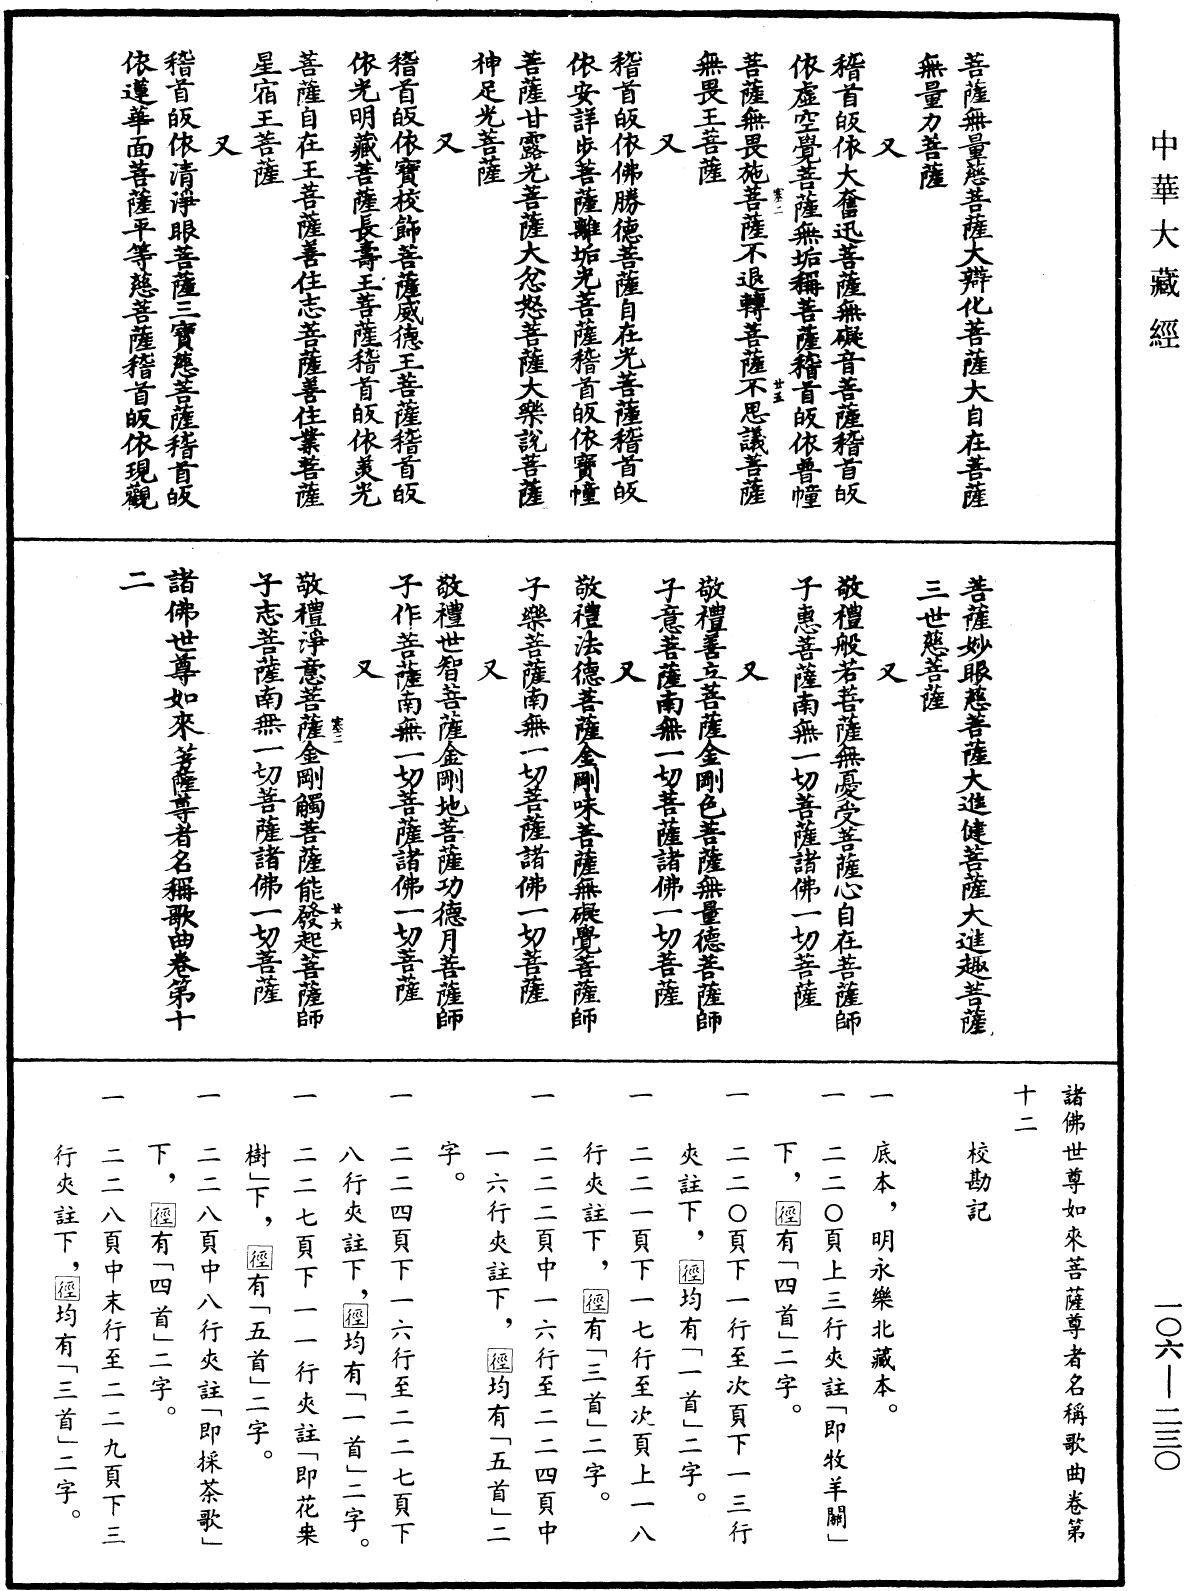 中華大藏經
菩薩無量慈菩薩大辯化菩薩大自在菩薩
無量力菩薩
又
稽首皈依大奮迅菩薩無礙音菩薩稽首皈
依虛空覺菩薩無垢稱菩薩稽首皈依普幢
菩薩無畏施菩薩不退轉菩薩不思議菩薩
寒二
廿五
無畏王菩薩
又
稽首皈依佛勝德菩薩自在光菩薩稽首皈
依安詳步菩薩離垢光菩薩稽首皈依寶幢
菩薩甘露光菩薩大忿怒菩薩大樂說菩薩
神足光菩薩
又
稽首皈依寶校飾菩薩威德王菩薩稽首皈
依光明藏菩薩長壽王菩薩稽首皈依美光
菩薩自在王菩薩善住志菩薩善住業菩薩
星宿王菩薩
又
稽首皈依清淨眼菩薩三寶慈菩薩稽首皈
依蓮華面菩薩平等慈菩薩稽首皈依現觀
菩薩妙眼慈菩薩大進健菩薩大進趣菩薩
三世慈菩薩
又
敬禮般若菩薩無憂受菩薩心自在菩薩師
子惠菩薩南無一切菩薩諸佛一切菩薩
又
敬禮善立菩薩金剛色菩薩無量德菩薩師
子意菩薩南無一切菩薩諸佛一切菩薩
又
敬禮法德菩薩金剛味菩薩無礙覺菩薩師
子樂菩薩南無一切菩薩諸佛一切菩薩
又
敬禮世智菩薩金剛地菩薩功德月菩薩師
子作菩薩南無一切菩薩諸佛一切菩薩
又
敬禮淨意菩薩金剛觸菩薩能發起菩薩師
寒二
廿六
子志菩薩南無一切菩薩諸佛一切菩薩
諸佛世尊如來菩薩尊者名稱歌曲卷第十
二
諸佛世尊如來菩薩尊者名稱歌曲卷第
十二
校勘記
一 底本，明永樂北藏本。
一 二二〇頁上三行夾註「即牧羊關」
下，徑有「四首」二字。
一 二二〇頁下一行至次頁下一三行
夾註下，徑均有「一首」二字。
一 二二一頁下一七行至次頁上一八
行夾註下，徑有「三首」二字。
一 二二二頁中一六行至二二四頁中
一六行夾註下，徑均有「五首」二
字。
一 二二四頁下一六行至二二七頁下
八行夾註下，徑均有「一首」二字。
一 二二七頁下一一行夾註「即花枼
樹」下，徑有「五首」二字。
一 二二八頁中八行夾註「即採茶歌」
下，徑有「四首」二字。
一 二二八頁中末行至二二九頁下三
行夾註下，徑均有「三首」二字。
一〇六—二三〇